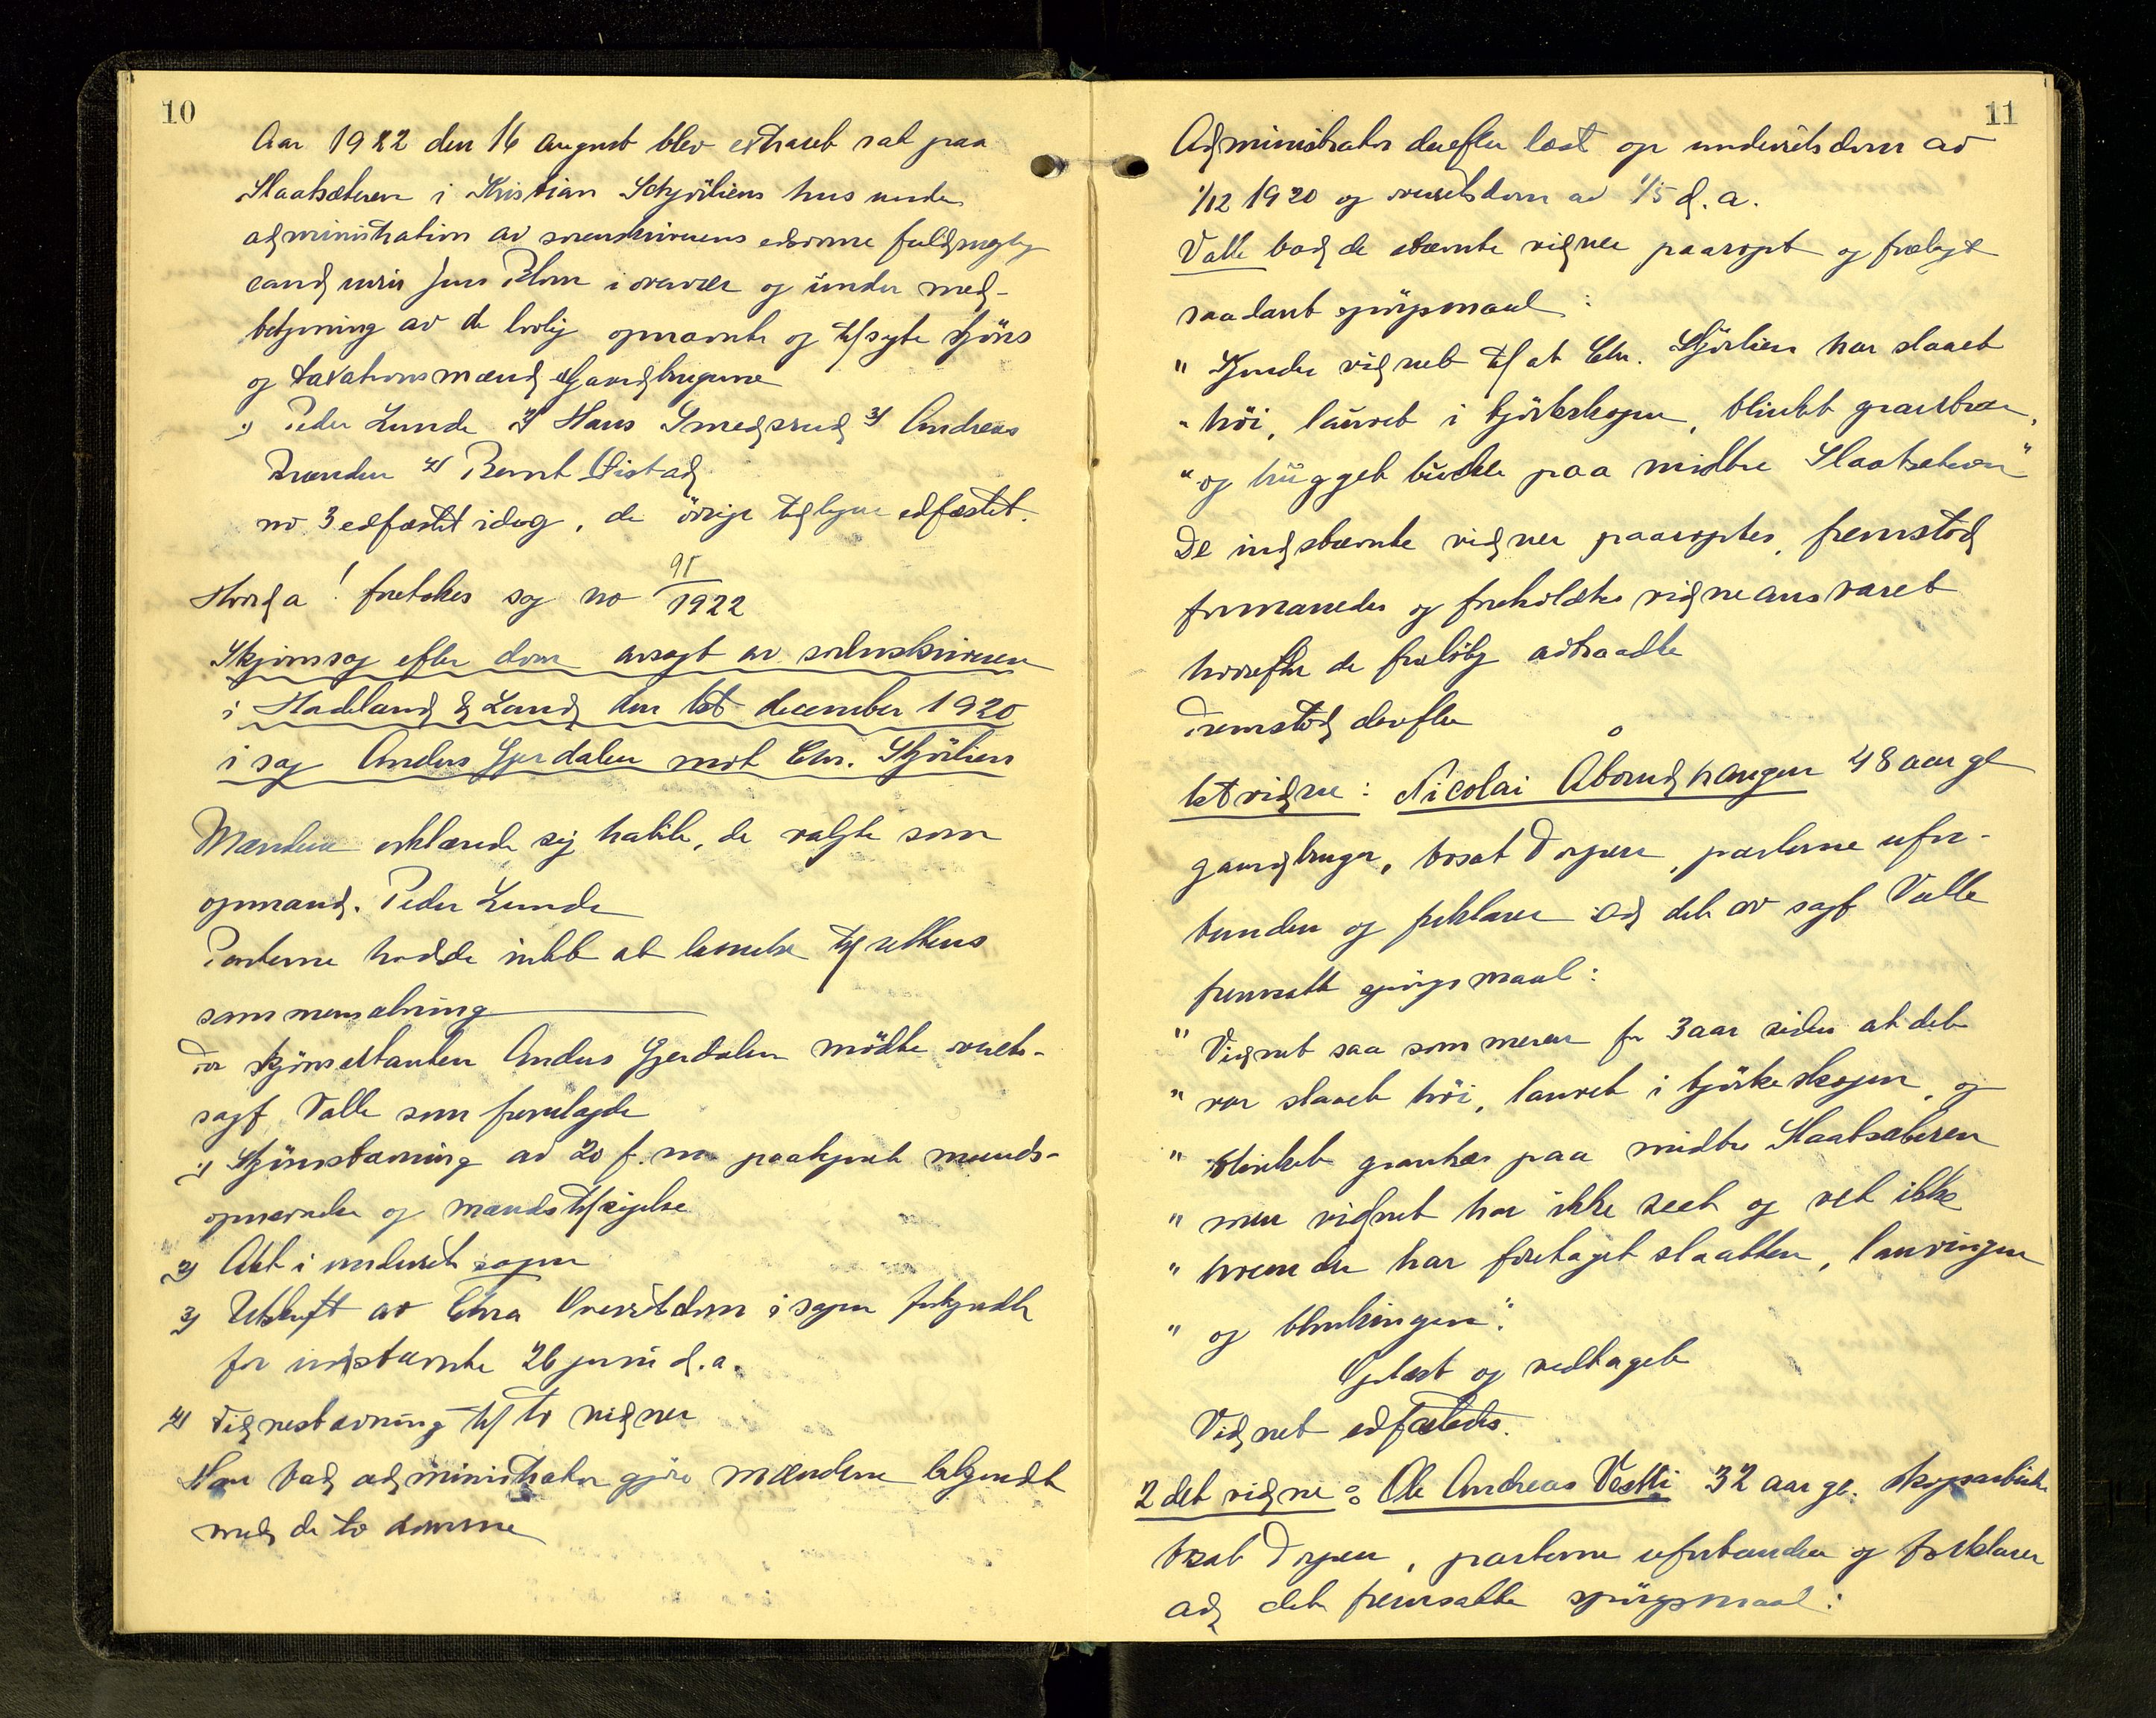 10
Aar 1922 den 16 august blev extraret sat paa
Slaatsæteren i Kristian Schjöliens hus under
administration av sorenskriverens edsvorne fuldmægtig
cand juris Jens Blom i overvær og under med-
betjening av de lovlig opnævnte og tilsagte skjöns
og taxationsmænd gaardbrugerne
1) Peder Lunde 2) Hans Smedsrud 3) Andreas
Trænden 4) Bernt Östad
no 3 edfæstet idag, de övrige tidligere edfæstet.
Hvorda! foretokes sag no 95/1922
Skjönssag efter dom avsagt av sorenskriveren
i Hadeland & Land den 1st december 1920
i sag Anders Gjerdalen mot Chr. Skjölien
Mændene erklærede sig habile, de valgte som
opmand. Peder Lunde
Parterne hadde intet at bemerke til rettens
sammensætning
For skjönscitanten Anders Gjerdalen mödte overrets-
sagf. Valle som fremlagde
1) Skjönsstævning av 20 f. m. paategnet mands-
opnævnelse og mændstilsigelse
2) Akt i underrets sagen
3) Utskrift av Chra Overretsdom i sagen forkyndt
for indstævnte 26 juni d. a.
4) Vidnestævning til to vidner
Han bad administrator gjöre mændene bekjendt
med de to domme
11
Administrator derefter læst op underrets dom av
1/12 1920 og overretsdom av 1/5 d. a.
Valle bad de stævnte vidner paaropt og forelagt
saadant spörgsmaal:
" Kjender vidnet til at Chr. Skjölien har slaaet
" höi, lauvet i björkeskogen, blinket grantrær,
" og hugget paa midtre Slaatsæteren"
De indstævnte vidner paaroptes, fremstod
formanedes og foreholdtes vidneansvaret
hvorefter de forelöbig avtraadte
Fremstod derefter
1st vidne: Nicolai Åbrudhaugen 48 aar gl
gaardbruger, bosat Torpen, parterne ufor-
bunden og forklarer ad det av sagf Valle
fremsatte spörgsmaal:
" Vidnet saa sommeren for 3 aar siden at det
" var slaaet höi, lauvet i björkeskogen, og
" blinket grantrær paa midtre Slaatsæteren
" men vidnet har ikke seet og vet ikke
" hvem der har foretaget slaatten, lauvingen
" og blinkingen".
Oplæst og vedtaget
Vidnet edfæstedes.
2 det vidne: Ole Andreas Vestli 32 aar gl. skogsarbeider
bosat Torpen, parterne uforbunden og forklarer
ad det fremsatte spörgsmaal: